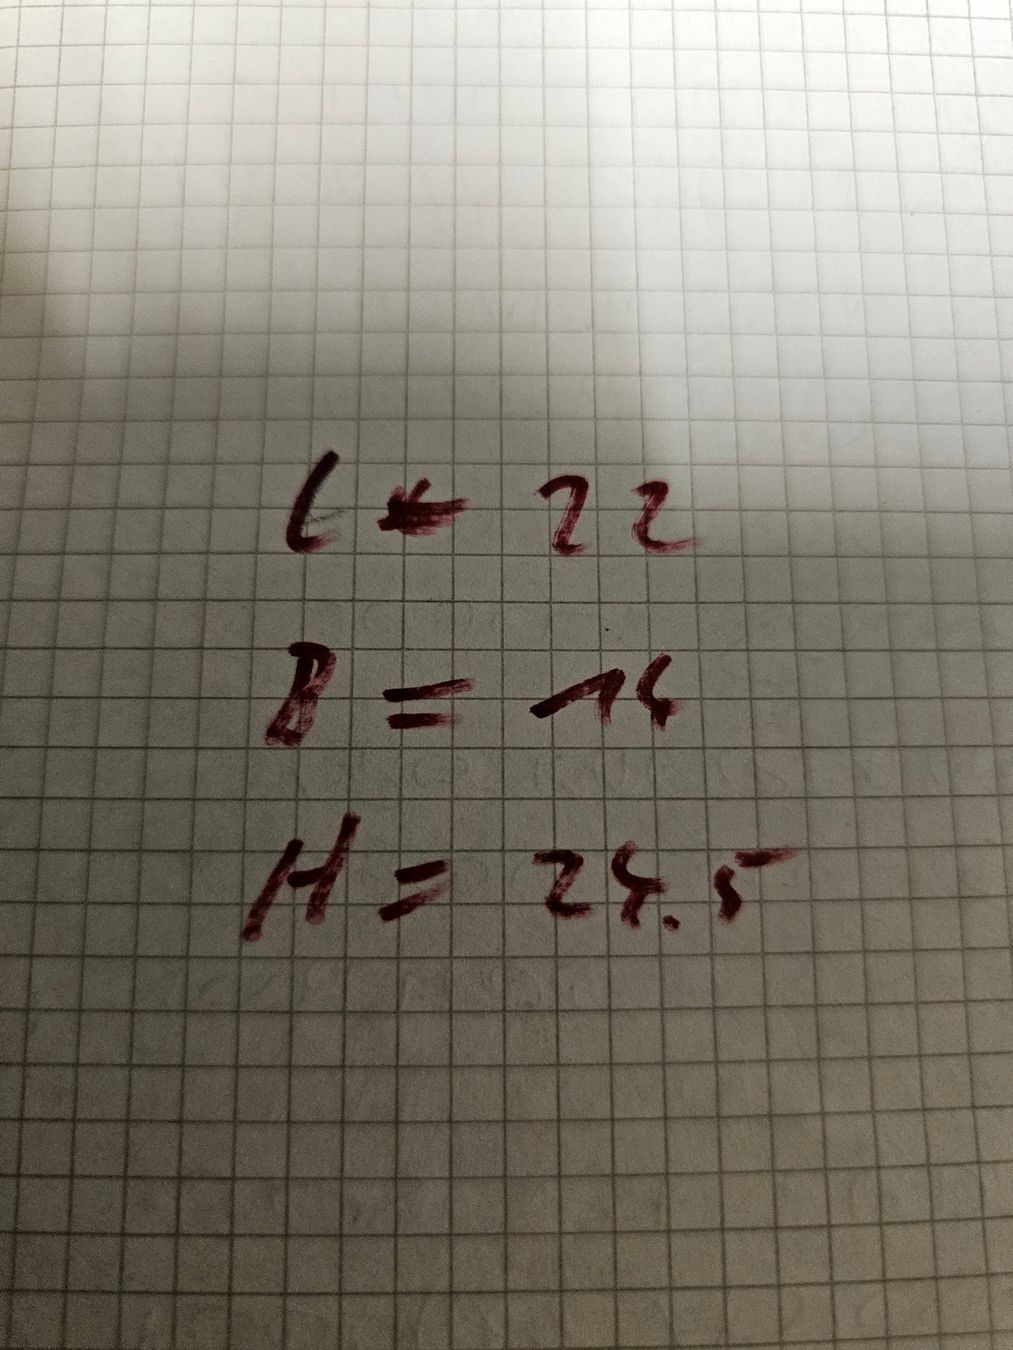 L = 22
B = 14
H = 24.5